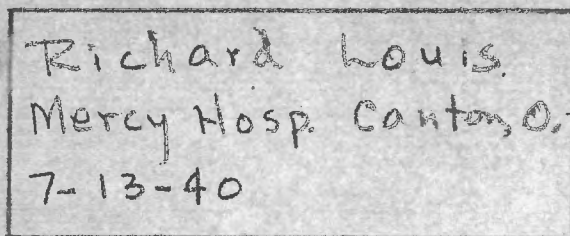 Richard Louis.
Mercy Hosp. Canton, O.
7-13-40